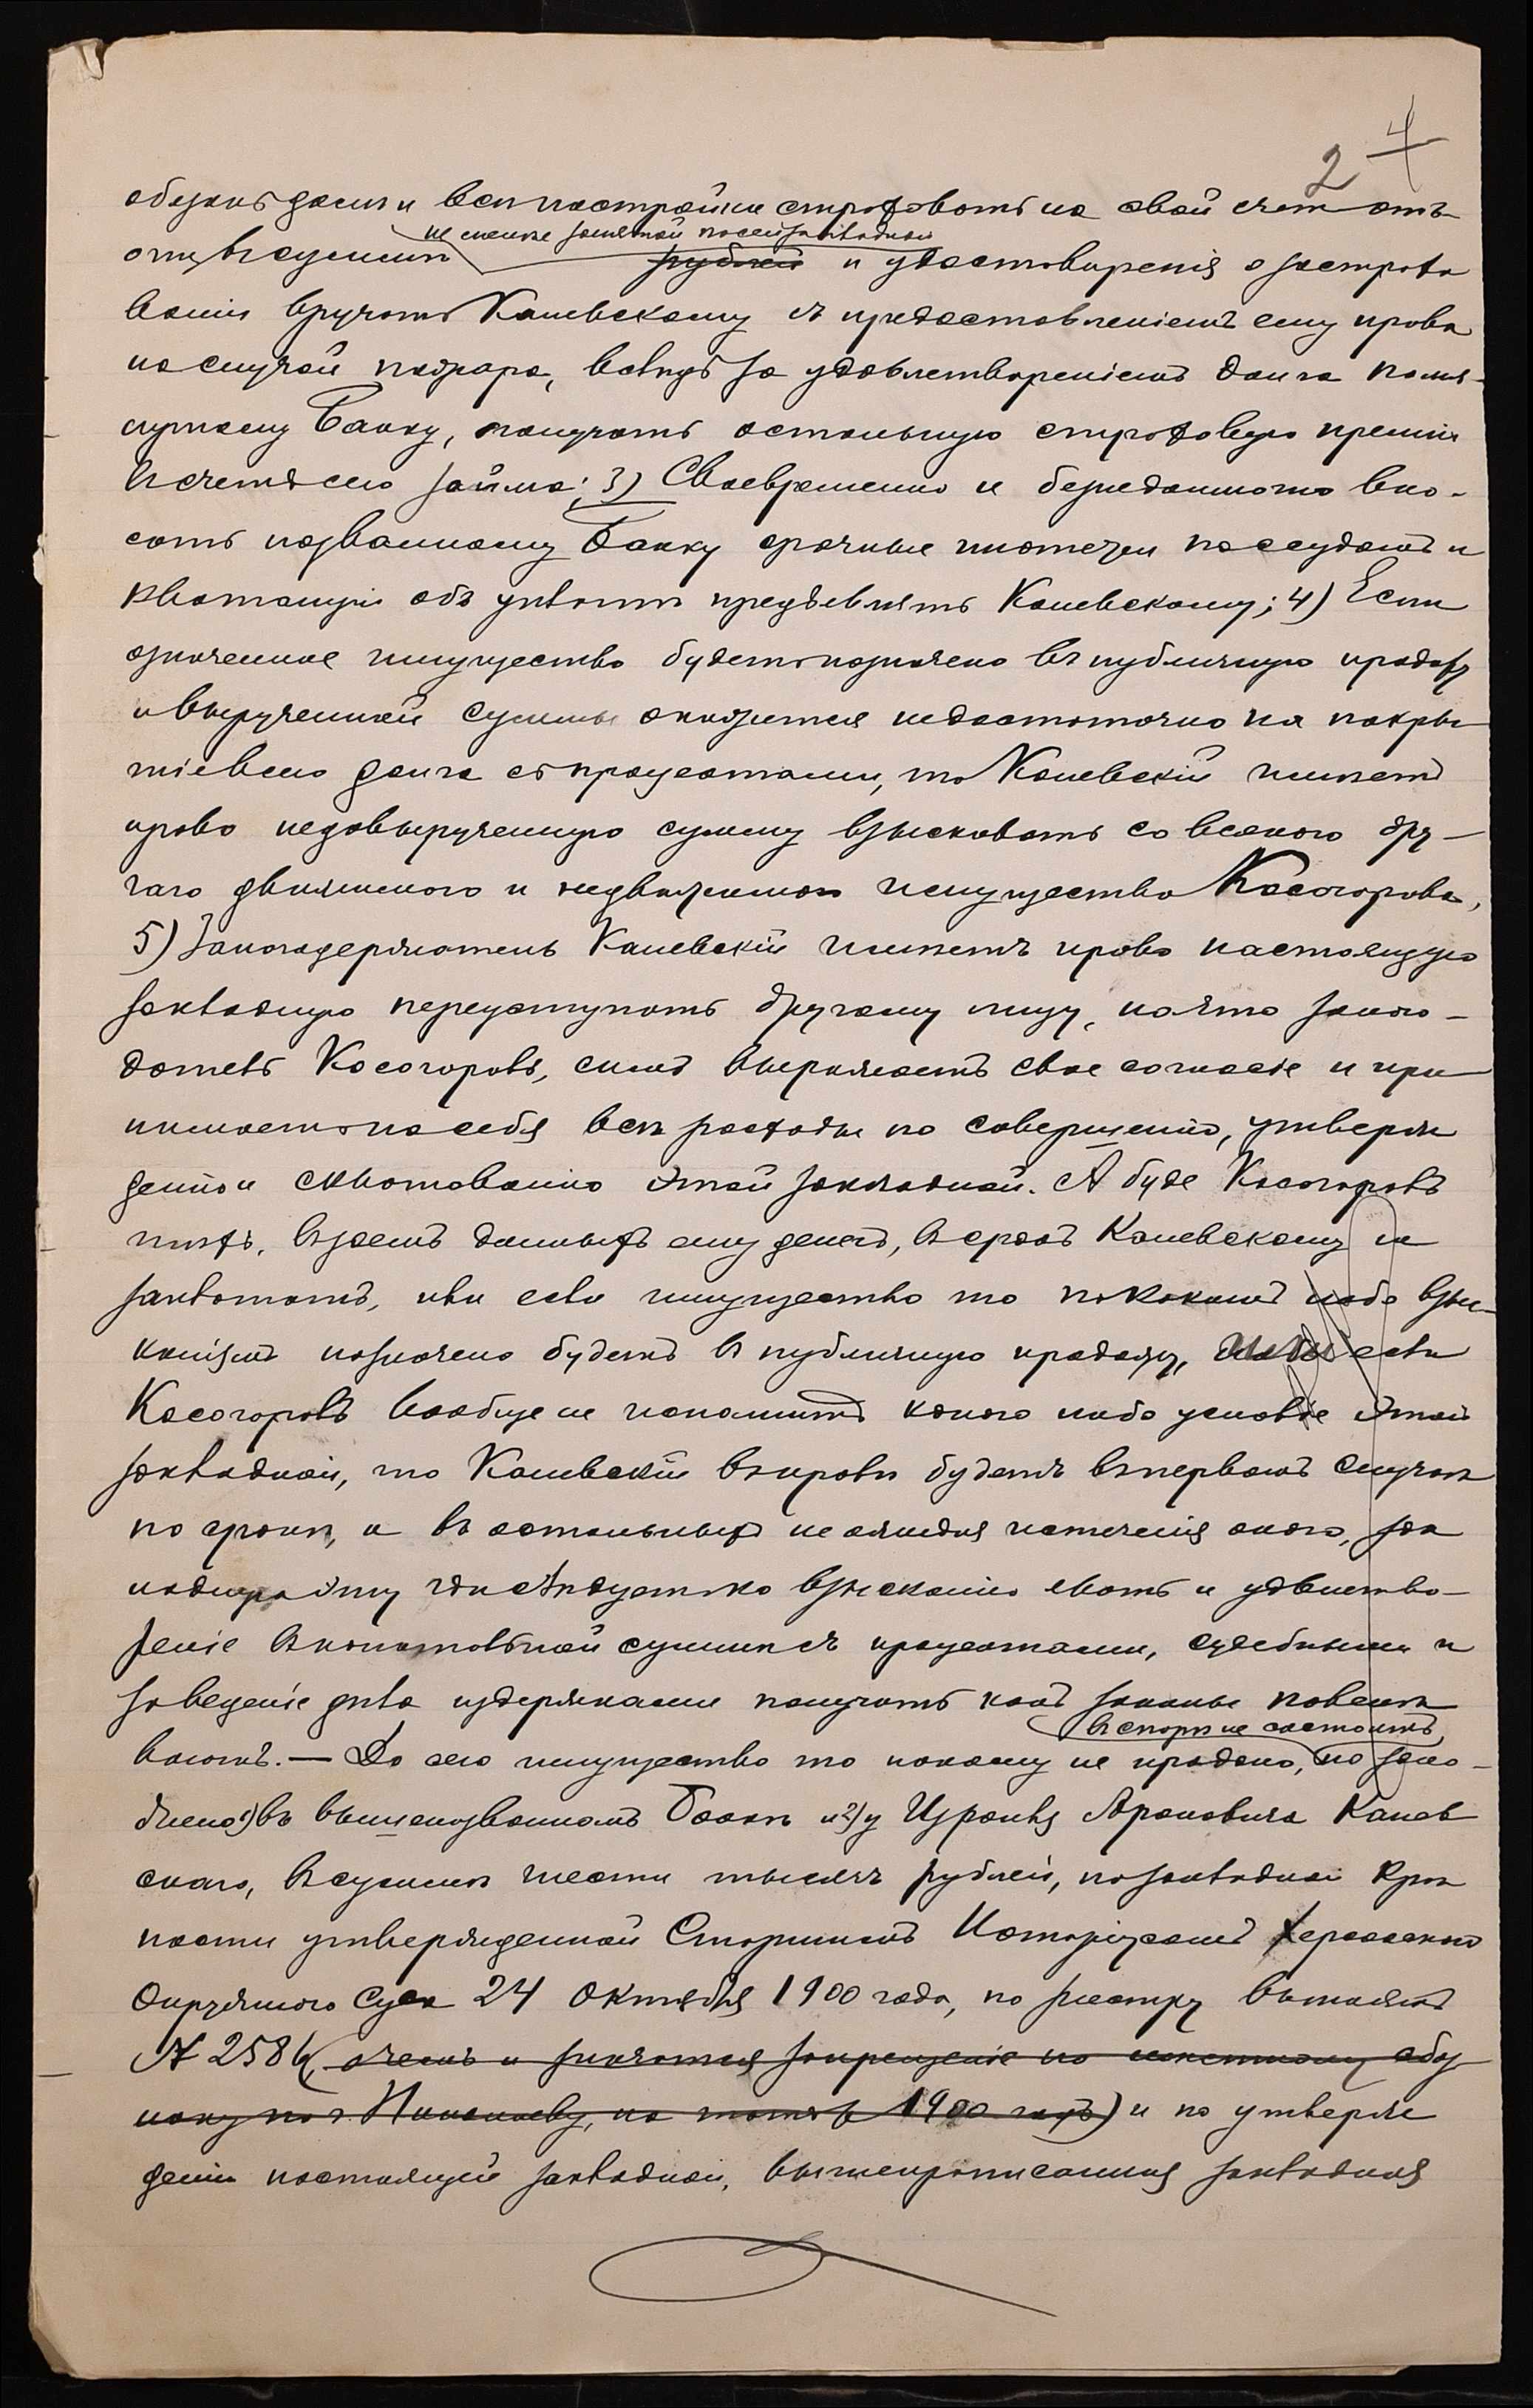 2 4
обязанъ домъ и всѣ постройки страховать на свой счетъ отъ
не менѣе занятой по сей закладной
огня, въ суммѣ рублей и удостовѣренія о застрахо
ваніи вручать Каневскому съ предоставленіемъ ему права
на случай пожара, вслѣдъ за удовлетвореніемъ долга помя-
нутому Банку, получать остальную страховую премію
въ счетъ сего займа; 3) Своевременно и безнедоимочно вно-
сить названному Банку срочные платежи по ссудамъ и
квитанціи объ уплатѣ предъявлять Каневскому; 4) Если
означенное имущество будетъ назначено въ публичную продажу
и вырученной суммы окажется недостаточно на покры
тіе всего долга съ процентами, то Каневскій имѣетъ
право недовырученную сумму взыскивать со всякого дру-
гаго движимаго и недвижимаго имущества Косогорова,
5) Залогодержатель Каневскій имѣетъ право настоящую
закладную переуступить другому лицу, на что залого-
датель Косогоровъ, симъ выражаетъ свое согласіе и при
нимаетъ на себя всѣ расходы по совершенію, утверж
денію и снятованію этой закладной. А буде Косогоровъ
тѣхъ, взаемъ данныхъ ему денегъ, въ срокъ Каневскому не
заплатитъ, или если имущество то по какимъ либо взы-
каніямъ назначено будетъ въ публичную продажу, или если
Косогоровъ вообще не исполнитъ какого либо условіе этой
закладной, то Каневскій вправѣ будетъ въ первомъ случаѣ
по срокѣ, а въ остальныхъ не ожидая истеченія онаго, зак
ладную эту гдѣ слѣдуетъ ко взысканію явить и удовлетво-
реніе въ капитальной суммѣ съ процентами, судебными и
за веденіе дѣла издержками получить какъ законы повелѣ
въ спорѣ не состоитъ
ваютъ. — До сего имущество то никому не продано, но зало-
жено 1) въ вышеназванномъ Банкѣ и 2) у Израиля Ароновича Канев
скаго, въ суммѣ шести тысячъ рублей, по закладной крѣ
пости утвержденной Старшимъ Нотаріусомъ Херсонскаго
Окружного Суда 24 Октября 1900 года, по реестру
№ 2586, о чемъ и значится запрещеніе по
г. Николаеву, на 1900 годъ) и по утверж
деніи настоящей закладной, вышепрописанная закладная